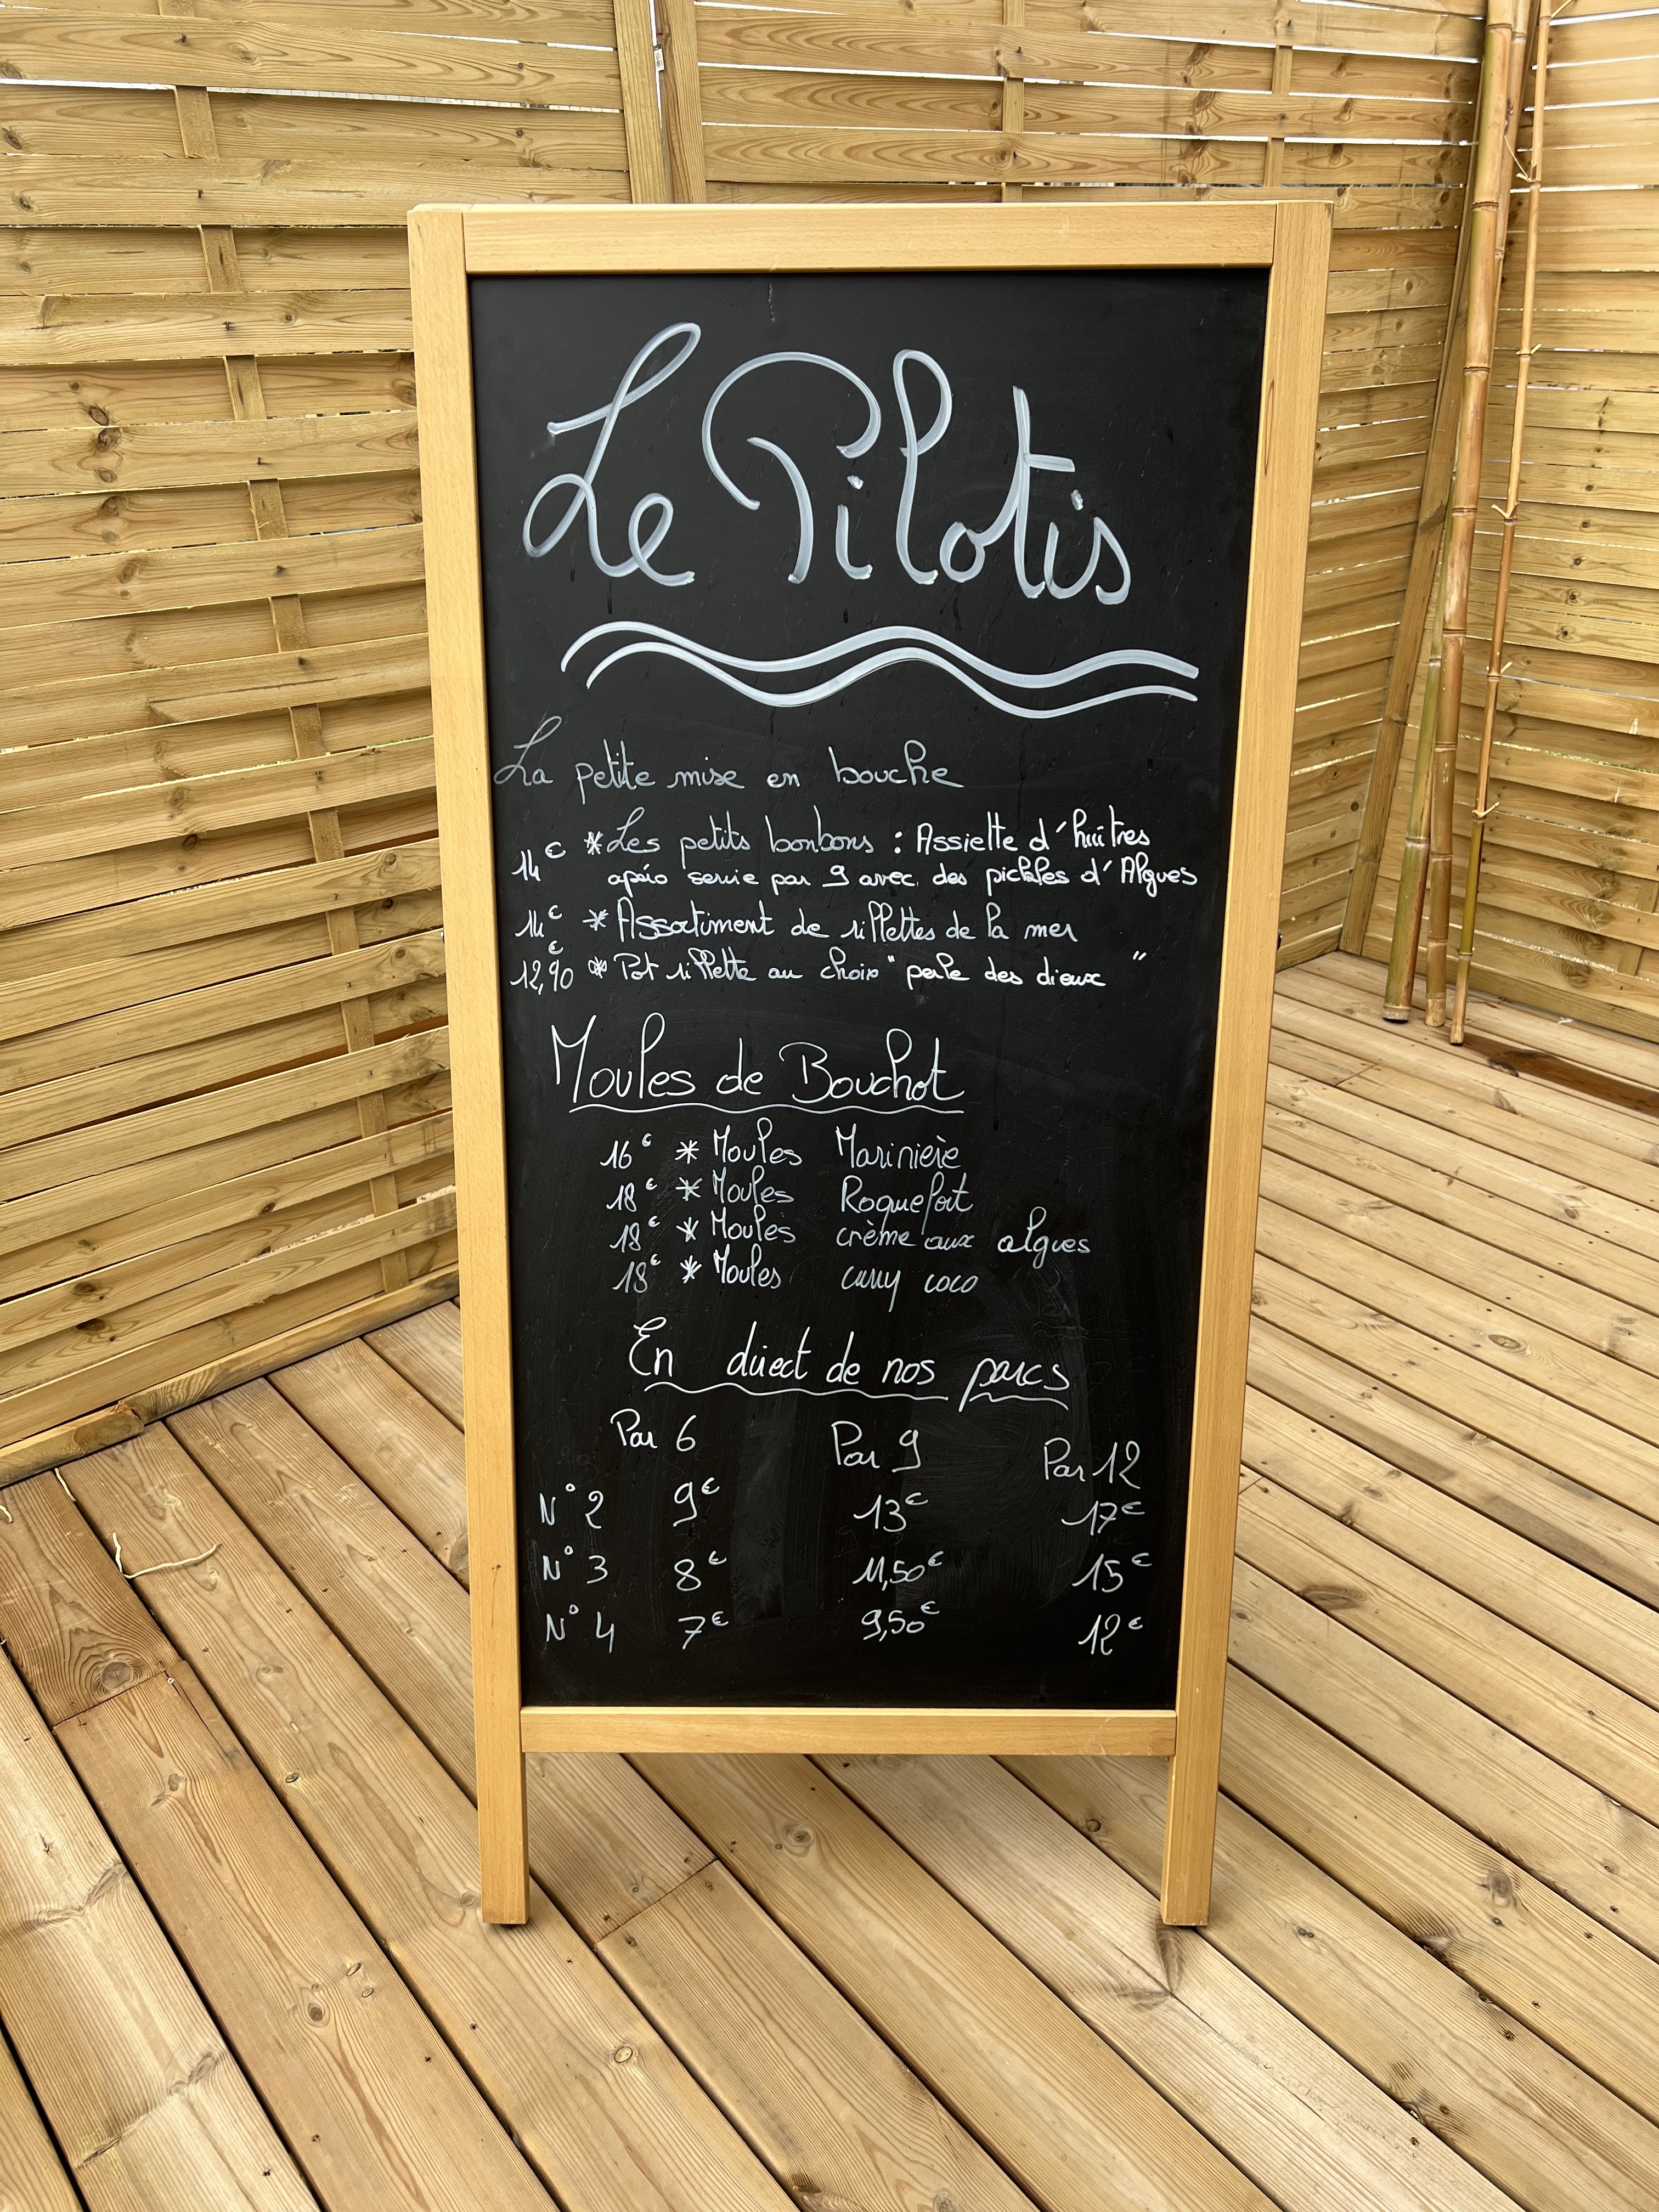 Le Pilotis
La petite mise en bouche
14€ * Les petits bonbons : Assiette d'huîtres
apéro servie par 9 avec des pickles d'Algues
14€ * Assortiment de rillettes de la mer
12,90€ * Pot rillette au choix "perle des dieux"
Moules de Bouchot
16€ * Moules Marinière
18€ * Moules Roquefort
18€ * Moules crème aux algues
18€ * Moules curry coco
En direct de nos parcs
Par 6 Par 9 Par 12
N°2 9€ 13€ 17€
N°3 8€ 11,50€ 15€
N°4 7€ 9,50€ 12€